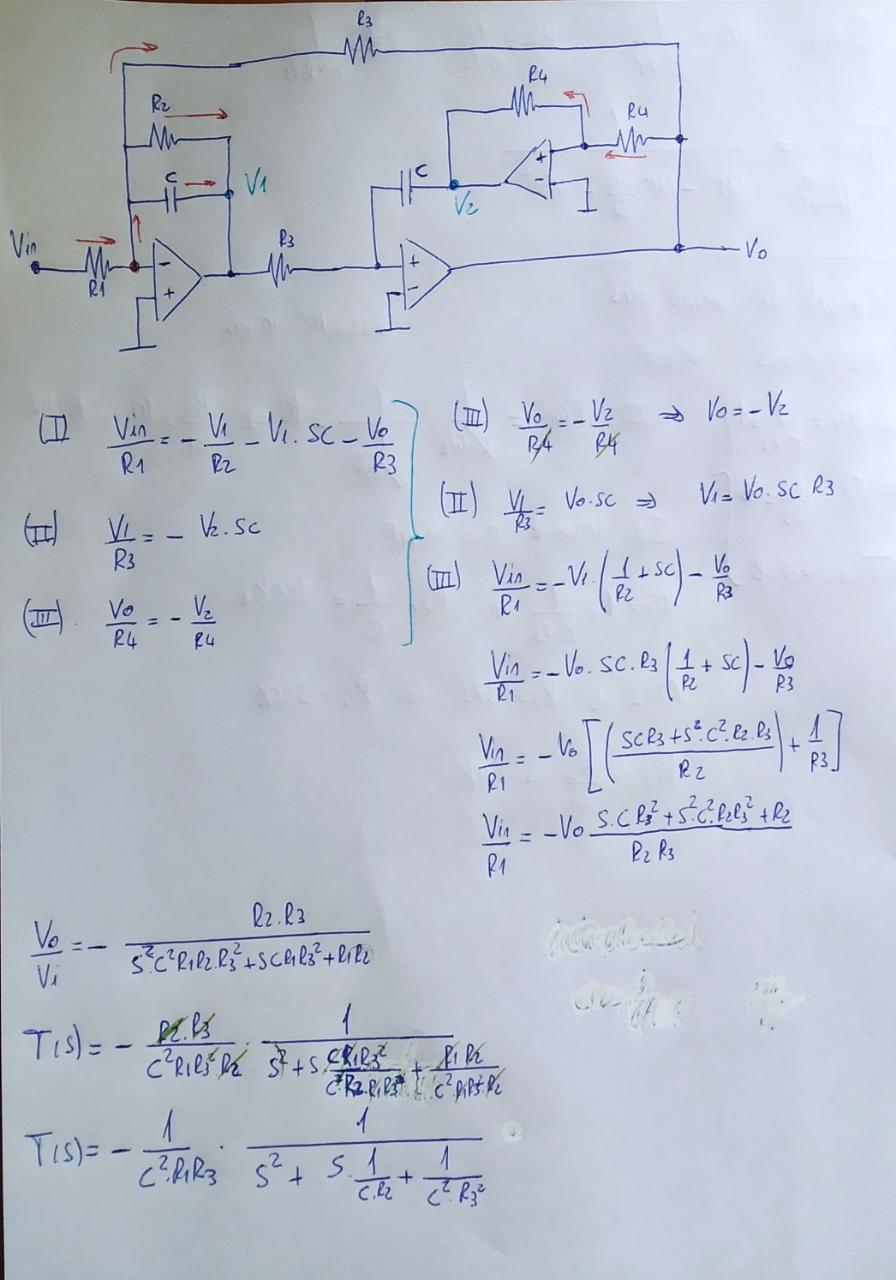 R3
R2
R4
R4
C
V1
C
V2
Vin
R1
-
+
R3
+
-
+
-
Vo
(I) Vin/R1 = - V1/R2 - V1 . SC - Vo/R3
(II) V1/R3 = - V2 . SC
(III). Vo/R4 = - V2/R4
(III) Vo/R4 = - V2/R4 ⇒ Vo = - V2
(II) V1/R3 = Vo . SC ⇒ V1 = Vo . SC . R3
(III) Vin/R1 = - V1 . (1/R2 + SC) - Vo/R3
Vin/R1 = - Vo . SC . R3 (1/R2 + SC) - Vo/R3
Vin/R1 = - Vo [((SCR3 + S² . C² . R2 . R3)/R2) + 1/R3]
Vin/R1 = - Vo (S . C R3² + S² . C² . R2R3² + R2)/(R2 R3)
Vo/Vi = - (R2 . R3)/(S² . C² R1R2 . R3² + SCR1R3² + R1R2)
T(s) = - (R2 . R3)/(C² R1R3² R2) . 1/(S² + S . (CR1R3²)/(C²R2 . R1R3²) + (R1 R2)/(C² . R1R3² . R2))
T(s) = - 1/(C² . R1R3) . 1/(S² + S . 1/(C . R2) + 1/(C² . R3²))